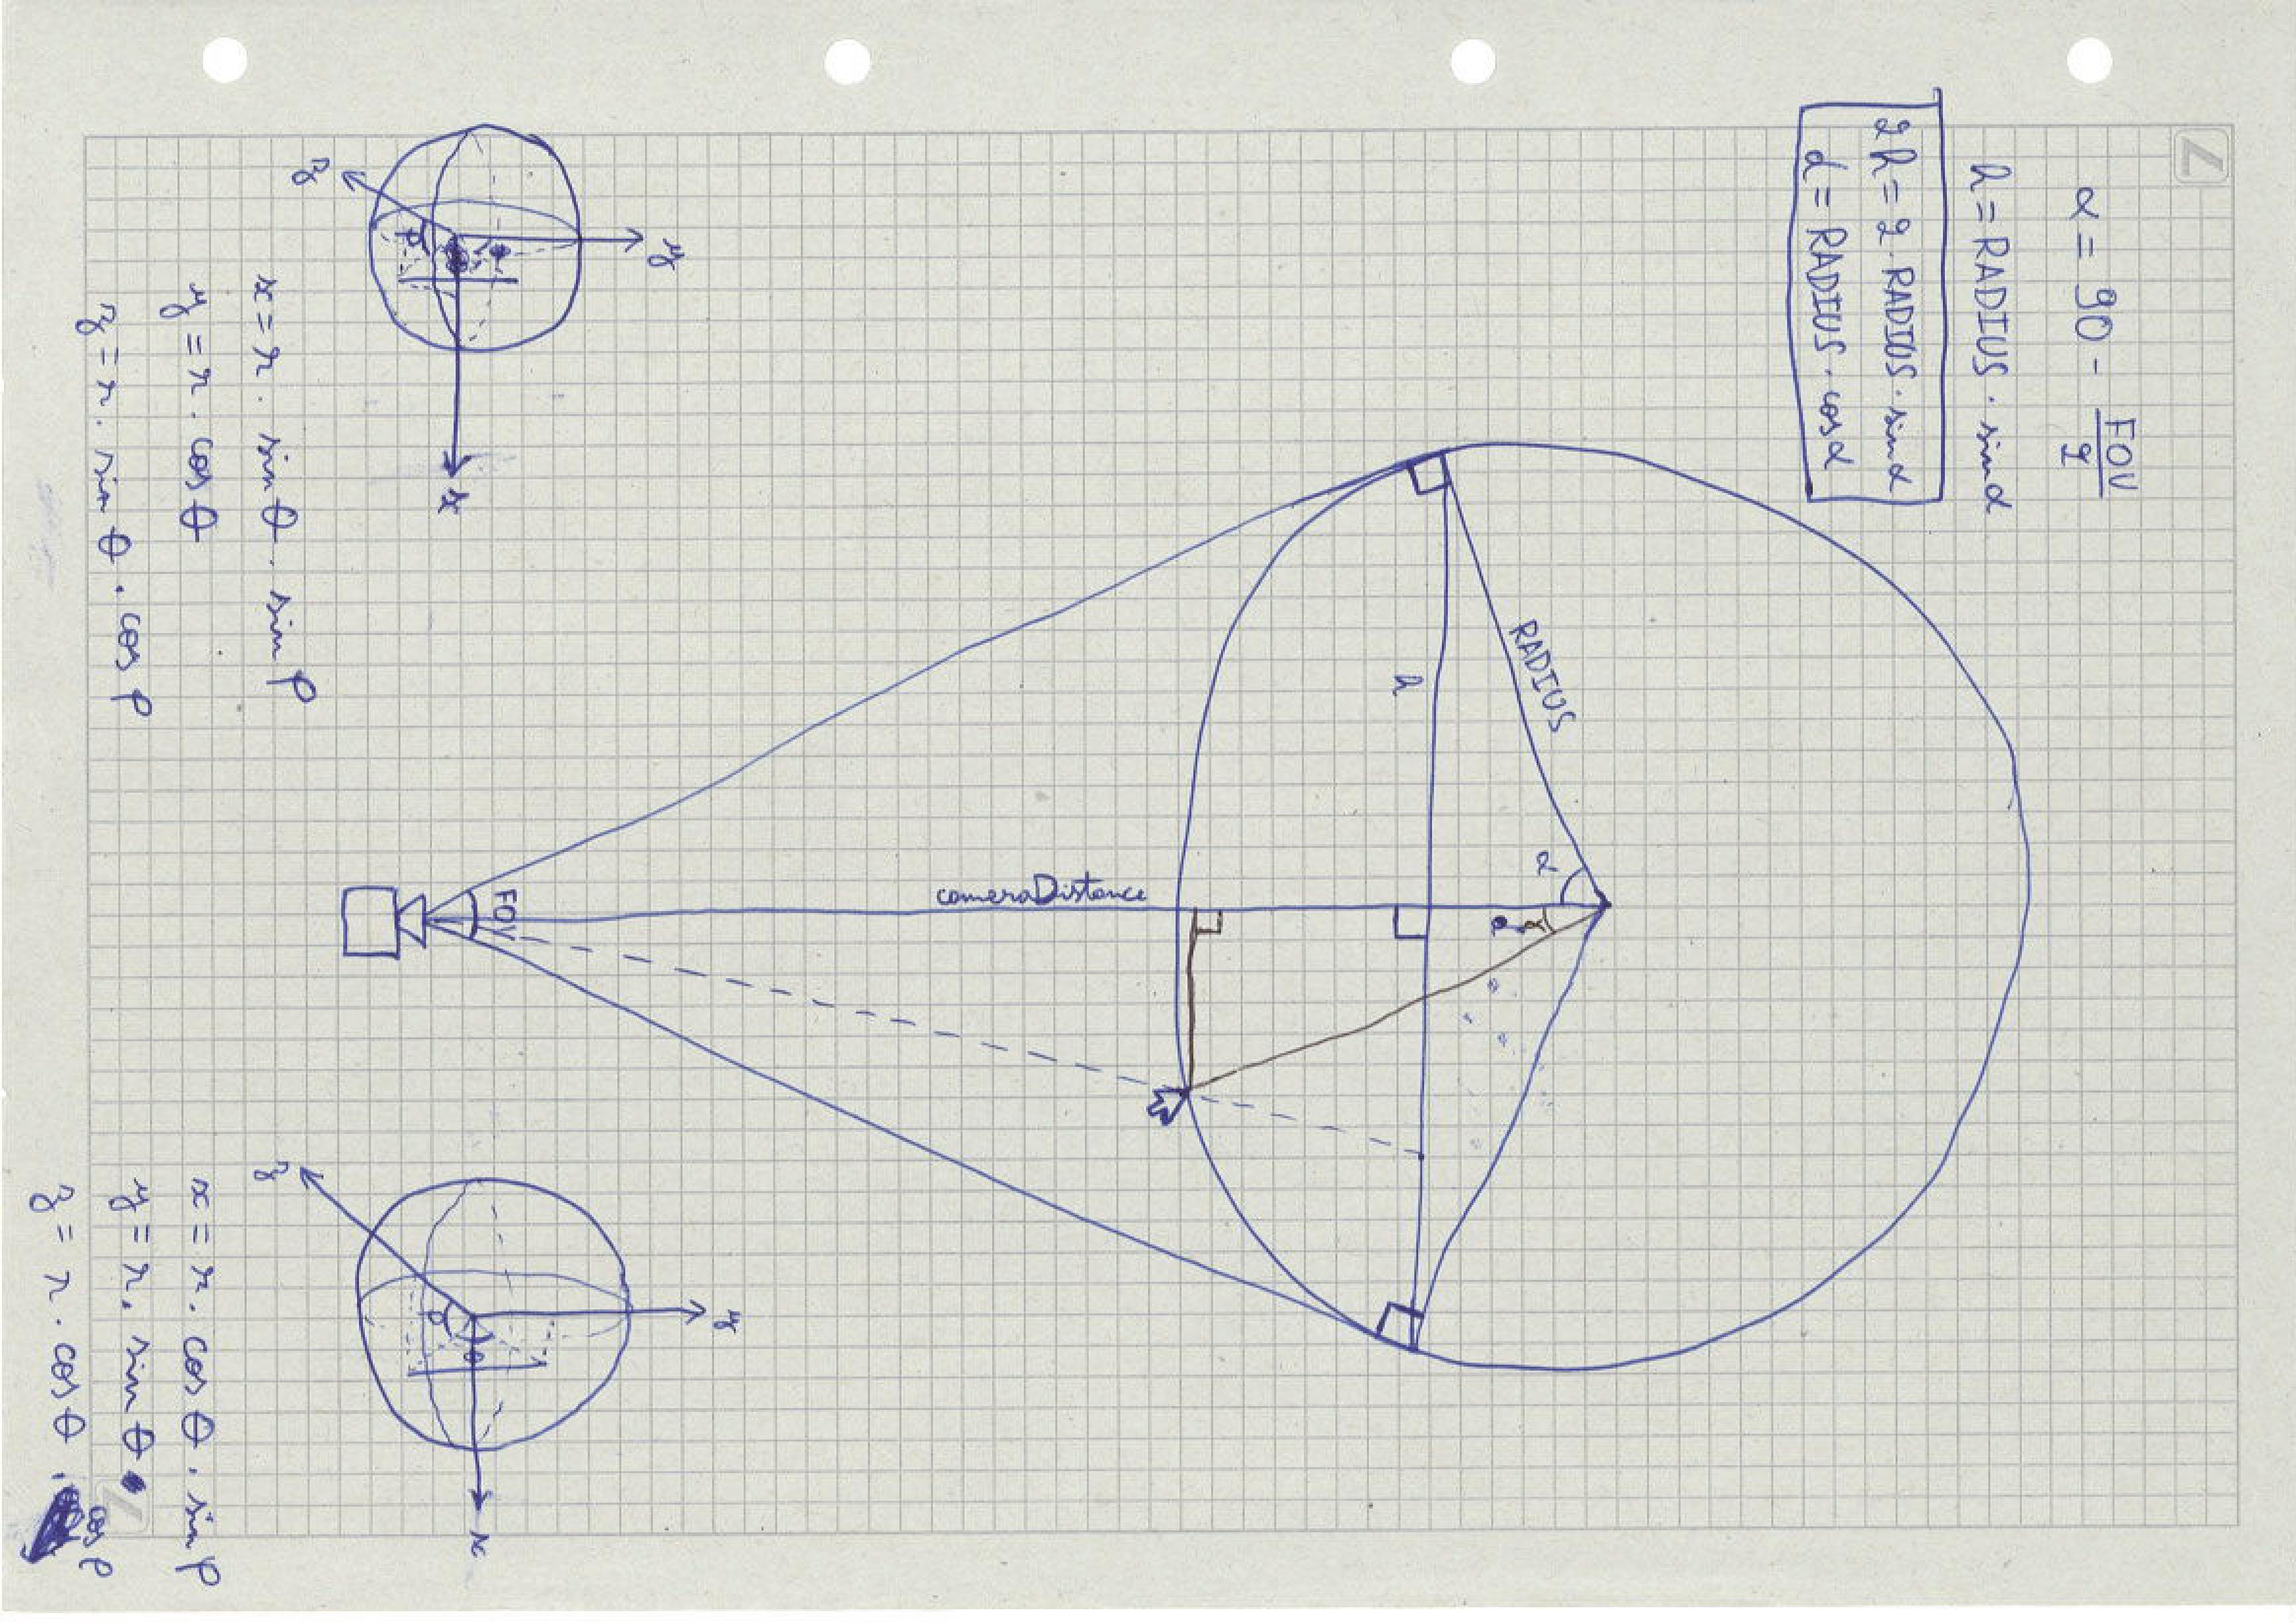 α = 90 - FOV/2
h = RADIUS · sin α
2h = 2 · RADIUS · sin α
d = RADIUS · cos α
RADIUS
h
α
α
cameraDistance
FOV
y
z
x
ρ
x = r · sin θ · sin ρ
y = r · cos θ
z = r · sin θ · cos ρ
y
z
x
ρ
θ
x = r · cos θ · sin ρ
y = r · sin θ
z = r · cos θ · cos ρ